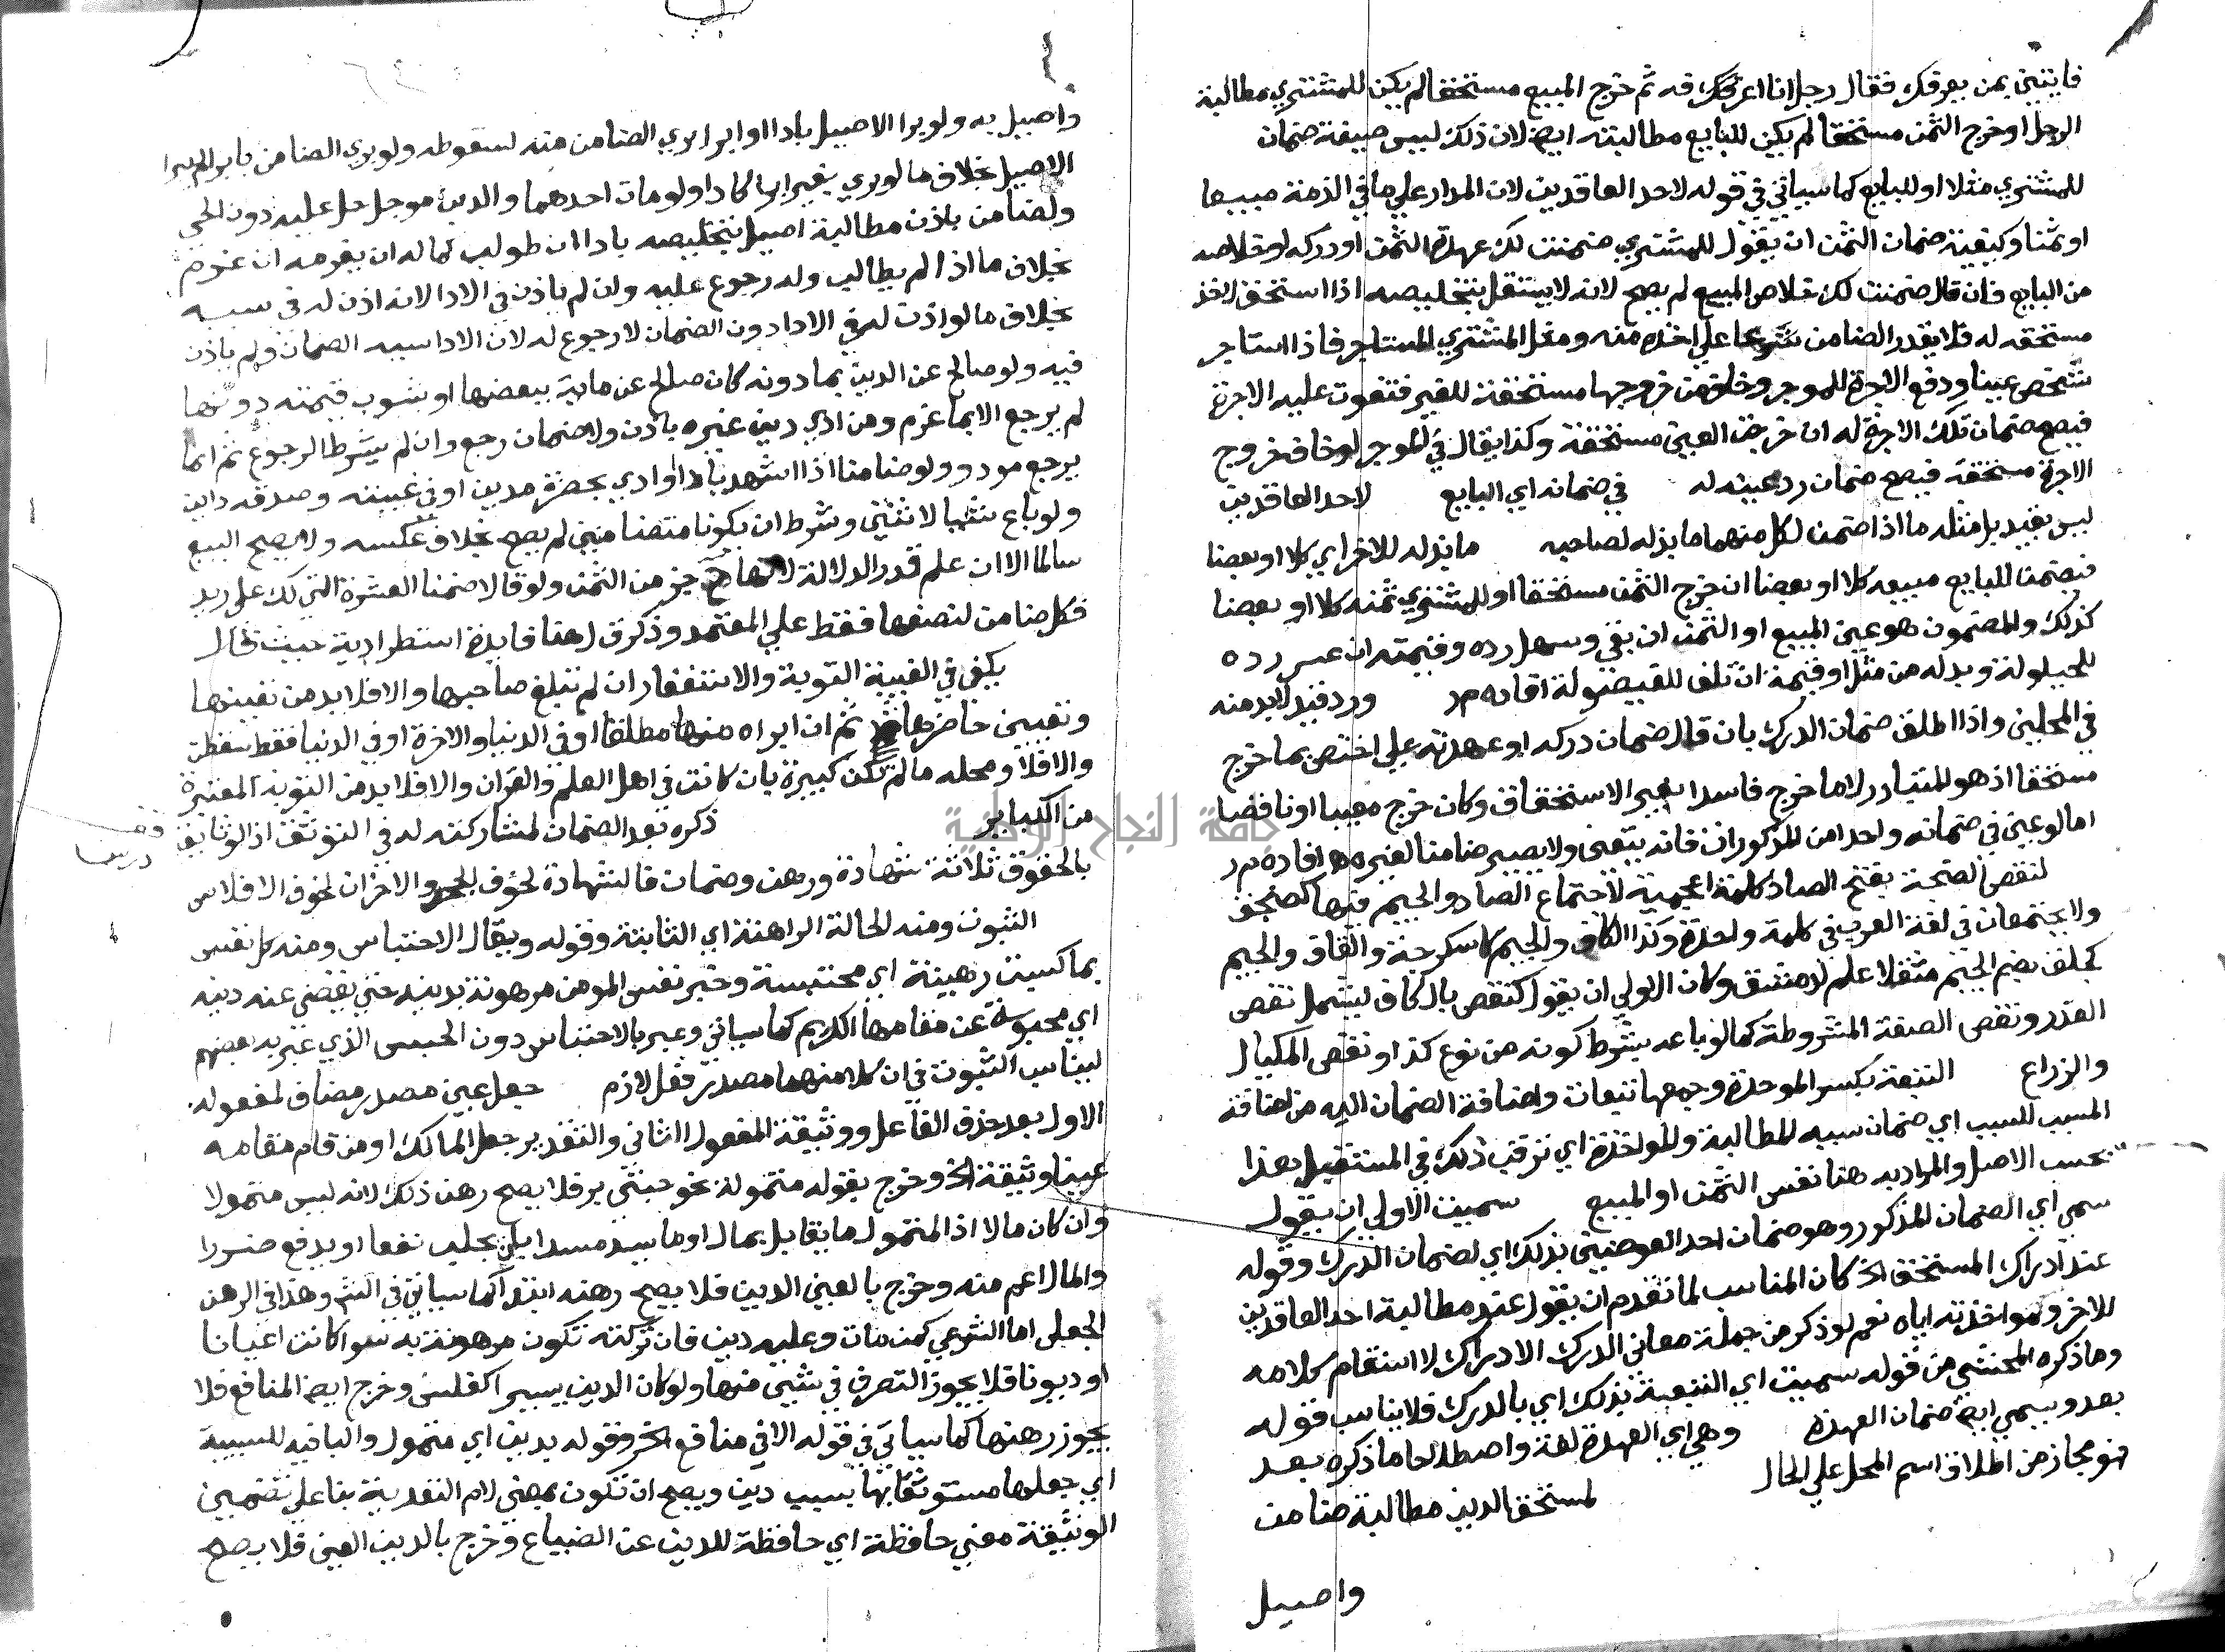 فايتني بمن يعرفك فقال رجل انا اعرفك فه ثم خرج المبيع مستحقا لم يكن للمشتري مطالبة
الرجل او خرج الثمن مستحقا لم يكن للبايع مطالبته ايضا لان ذلك ليس صيغة ضمان
للمشتري مثلا او للبايع كما سياتي في قوله لاحد العاقدين لان المدار علي ما في الذمة مبيعا
او ثمنا وكيفية ضمان الثمن ان يقول للمشتري ضمنت لك عهدة الثمن او دركه او خلاصه
من البايع فان قال ضمنت لك خلاص المبيع لم يصح لانه لا يستقل بتخليصه اذا استحق لاخذ
مستحقه له فلا يقدر الضامن شرعا علي اخذه منه ومثل المشتري المستاجر فاذا استاجر
شخص عينا ودفع الاجرة للموجر وخاف من خروجها مستحقة للغير فتفوت عليه الاجرة
فيصح ضمان تلك الاجرة له ان خرجت العين مستحقة وكذا يقال في الموجر لو خاف خروج
الاجرة مستحقة فيصح ضمان رد عينه له في ضمانه اي البايع لاحد العاقدين
ليس بقيد بل مثله ما اذا ضمن لكل منهما ما بذله لصاحبه ما بذله للاخر اي كلا او بعضا
فيضمن للبايع مبيعه كلا او بعضا ان خرج الثمن مستحقا او للمشتري ثمنه كلا او بعضا
كذلك والمضمون هو عين المبيع او الثمن ان بقي وسهل رده وقيمته ان عسر رده
للحيلولة وبدله من مثل او قيمة ان تلف للفيصولة افاده مر ورد قيد لابد منه
في المحلين واذا اطلق ضمان الدرك بان قال ضمان دركه او عهدته علي اختص بما خرج
مستحقا اذ هو المتبادر لا ما خرج فاسدا بغير الاستحقاق وكان خرج معيبا او ناقصا
اما لو عين في ضمانه واحدا من المذكورات فانه يتعين ولا يصير ضامنا لغيره افاده مر
لنقص الصنجة بفتح الصاد كلمة اعجمية لاجتماع الصاد والجيم فيها كصنجق
ولا يجتمعان في لغة العرب في كلمة واحدة وكذا الكاف والجيم كاسكرجة والقاف والجيم
كجلق بضم الجيم مثقلا علم لدمشق وكان الاولي ان يقول كنقص بالكاف ليشمل نقص
القدر ونقص الصفة المشروطة كما لو باعه بشرط كونه من نوع كذا او نقص المكيال
والزراع التبعة بكسر الموحدة وجمعها تبعات واضافة الضمان اليه من اضافة
المسبب للسبب اي ضمان سببه المطالبة والمواخذة اي ترقب ذلك في المستقبل هذا
بحسب الاصل والمراد به هنا نفس الثمن او المبيع سميت الاولي ان يقول
سمي اي الضمان المذكور وهو ضمان احد العوضين بذلك اي لضمان الدرك وقوله
عند ادراك المستحق الخ كان المناسب لما تقدم ان يقول عند مطالبة احد العاقدين
للاخر ومواخذته اياه نعم لو ذكر من جملة معاني الدرك الادراك لا استقام كلامه
وما ذكره المحشي من قوله سميت اي التبعة بذلك اي بالدرك فلا يناسب قوله
بعد ويسمي ايضا ضمان العهدة وهي اي العهدة لغة واصطلاحا ما ذكره بعد
فهو مجاز من اطلاق اسم المحل علي الحال لمستحق الدين مطالبة ضامن
واصيل
واصيل به ولو برا الاصيل بادا او ابرا بري الضامن منه لسقوطه ولو بري الضامن بابرا لم يبرا
الاصيل بخلاف ما لو بري بغير ابرا كادا ولو مات احدهما والدين موجل حل عليه دون الحي
ولضامن باذن مطالبة اصيل بتخليصه بادا ان طولب كما له ان يغرمه ان غرم
بخلاف ما اذا لم يطالب وله رجوع عليه وان لم ياذن في الادا لانه اذن له في سببه
بخلاف ما لو اذن له في الادا دون الضمان لا رجوع له لان الادا سببه الضمان ولم ياذن
فيه ولو صالح عن الدين بما دونه كان صالح عن ماية ببعضها او بثوب قيمته دونها
لم يرجع الا بما غرم ومن ادي دين غيره باذن ولا ضمان رجع وان لم يشرط الرجوع ثم انما
يرجع مود ولو ضامنا اذا اشهد بادا او ادي بحضرة مدين او في غيبته وصدقه داين
ولو باع شيا لاثنين وشرط ان يكونا متضامنين لم يصح بخلاف عكسه ولا يصح البيع
سالما الا ان علم قدر الدلالة لانها ح جز من الثمن ولو قالا ضمنا العشرة التي لك علي زيد
فكل ضامن لنصفها فقط علي المعتمد وذكر ق ل هنا فايدة استطرادية حيث قال
يكفي في الغيبة التوبة والاستغفار ان لم تبلغ صاحبها والا فلا بد من تعيينها
وتعيين حاضرها ثم ان ابراه منها مطلقا او في الدنيا والاخرة او في الدنيا فقط سقطت
والا فلا ومحله ما لم تكن كبيرة بان كانت في اهل العلم والقران والا فلا بد من التوبة المعتبرة
من الكباير ذكره بعد الضمان لمشاركته له في التوثق اذ الوثايق
بالحقوق ثلاثة شهادة ورهن وضمان فالشهادة لخوف الجحد والاخران لخوف الافلاس
الثبوت ومنه الحالة الراهنة اي الثابتة وقوله ويقال الاحتباس ومنه كل نفس
بما كسبت رهينة اي محتبسة وخبر نفس المومن مرهونة بدينه حتي يقضي عنه دينه
اي محبوسة عن مقامها الكريم كما سياتي وعبر بالاحتباس دون الحبس الذي عبر به بعضهم
ليناسب الثبوت في ان كلا منهما مصدر فعل لازم جعل عين مصدر مضاف لمفعوله
الاول بعد حذف الفاعل ووثيقة المفعول الثاني والتقدير جعل المالك او من قام مقامه
عينا وثيقة الخ وخرج بقوله متمولة نحو حبتي بر فلا يصح رهن ذلك لانه ليس متمولا
وان كان مالا اذ المتمول ما يقابل بمال او ما يسد مسدا بان يجلب نفعا او يدفع ضررا
والمال اعم منه وخرج بالعين الدين فلا يصح رهنه ابتدا كما سياتي في الش وهذا في الرهن
الجعلي اما الشرعي كمن مات وعليه دين فان تركته تكون مرهونة به سوا كانت اعيانا
او ديونا فلا يجوز التصرف في شيي منها ولو كان الدين يسيرا كفلس وخرج ايضا المنافع فلا
يجوز رهنها كما سياتي في قوله الاتي منافع الخ وقوله بدين اي متمول والبا فيه للسببية
اي جعلها مستوثقا بها بسبب دين ويصح ان تكون بمعني لام التعدية بنا علي تضمين
الوثيقة معني حافظة اي حافظة للدين عن الضياع وخرج بالدين العين فلا يصح
جامعة النجاح الوطنية